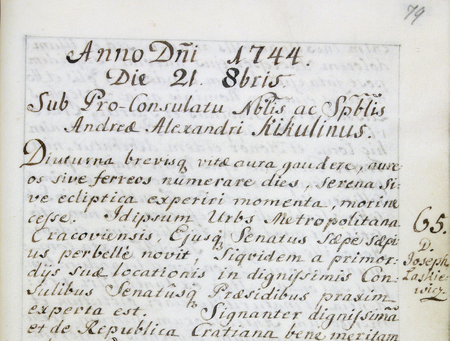 79
Anno Dñi 1744.
Die 21. 8bris.
Sub Pro-Consulatu Nblis ac Spblis
Andreæ Alexandri Kikulinus.
Diuturna brevisq vitæ aura gaudere, aure
os sive ferreos numerare dies, serena si
ve ecliptica experiri momenta, mori ne
cesse. Idipsum Urbs Metropolitana
Cracoviensis, Ejusq Senatus sæpe sæpi
us perbellè novit, siqvidem a primor
dijs suæ locationis in dignissimis Con
sulibus Senatûsq Præsidibus praxim
experta est. Signanter dignissimũ
et de Republica Cratiana bene meritam
65.
D.
Joseph
Laskie
wicz